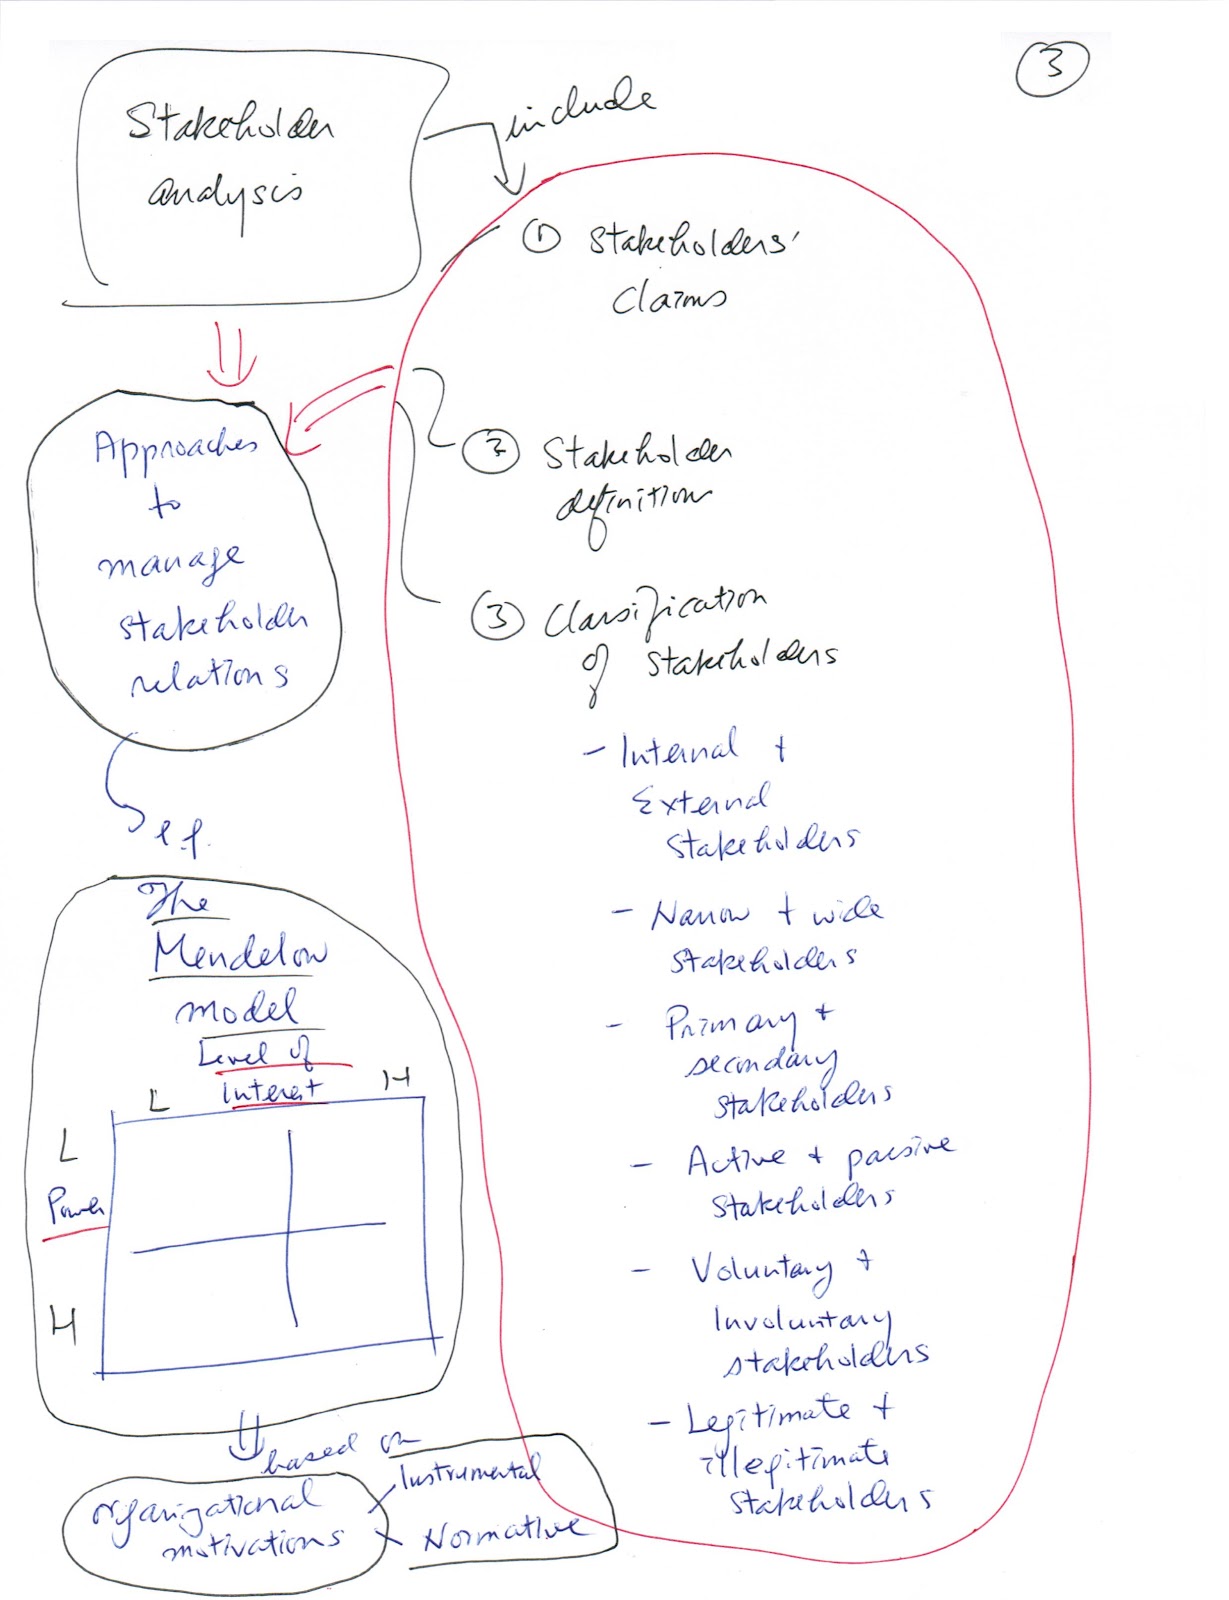 3
Stakeholder
analysis
include
① Stakeholders'
Claims
② Stakeholder
definition
③ Classification
of stakeholders
- Internal +
External
Stakeholders
- Narrow + wide
stakeholders
- Primary +
secondary
stakeholders
- Active + passive
stakeholders
- Voluntary +
Involuntary
stakeholders
- Legitimate +
illegitimate
stakeholders
Approaches
to
manage
stakeholder
relations
e.g.
The
Mendelow
model
Level of
Interest
L
H
L
Power
H
based on
organizational
motivations
Instrumental
Normative